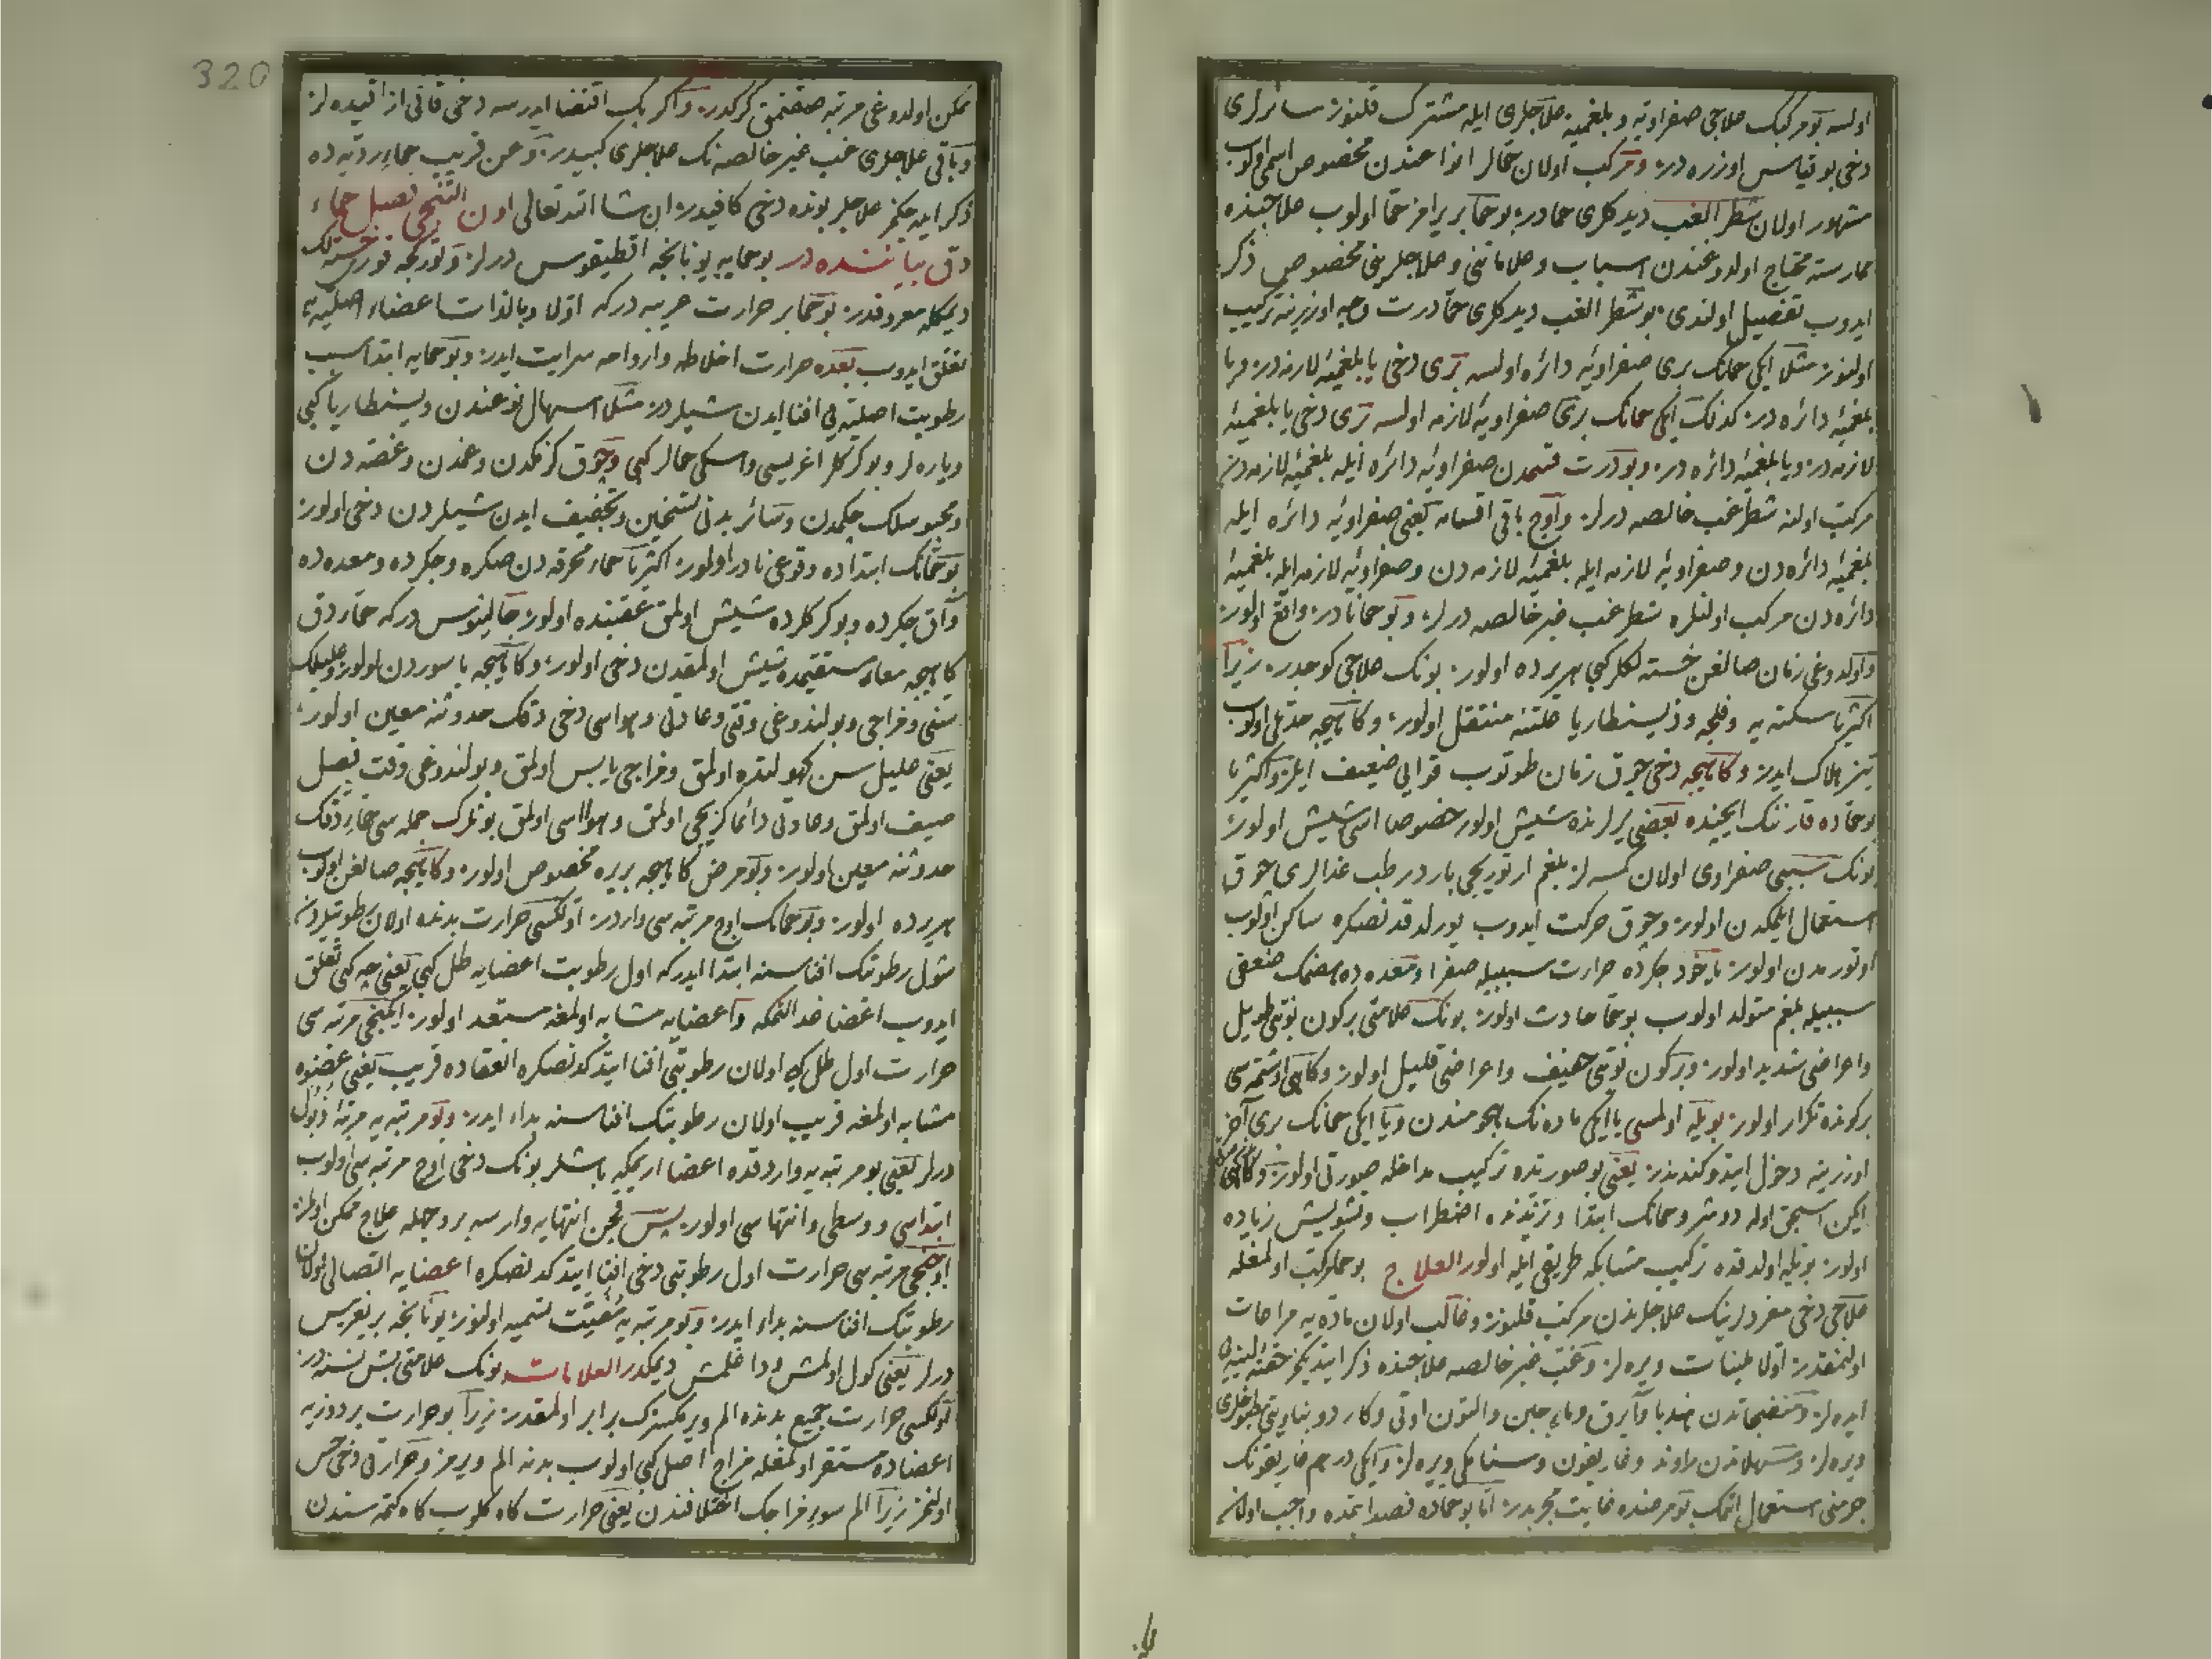 اولسه بو مركبك علاجى صفراويه و بلغميه علاجلرى ايله مشترك قلنور سائرلرى
دخى بو قياس اوزره در و مركب اولان حمالر انواعندن مخصوص اسمى اولوب
مشهور اولان شطر الغب ديدكلرى حمادر بو حما بر يرامز حما اولوب علاجنده
ممارسته محتاج اولدوغندن اسباب و علاماتنى و علاجلرينى مخصوص ذكر
ايدوب تفصيل اولندى بو شطر الغب ديدكلرى حما درت وجه اوزرينه تركيب
اولنور مثلا ايكى حمانك برى صفراويۀ دائره اولسه برى دخى يا بلغميۀ لازمه در و يا
بلغميۀ دائره در كذلك ايكى حمانك برى صفراويۀ لازمه اولسه برى دخى يا بلغميۀ
لازمه در و يا بلغميۀ دائره در و بو درت قسمدن صفراويۀ دائره ايله بلغميۀ لازمه دن
مركب اولنه شطر غب خالصه ديرلر و اوچ باقى اقسامه يعنى صفراويۀ دائره ايله
بلغميۀ دائره دن و صفراويۀ لازمه ايله بلغميۀ لازمه دن و صفراويۀ لازمه ايله بلغميۀ
دائره دن مركب اولنلره شطر غب غير خالصه ديرلر و بو حما نادر واقع اولور
و اولدوغى زمان صالغن خسته لكلر كبى هر يرده اولور بونك علاجى كوجدر زيرا
اكثريا سكته يه و فلجه و ذيسنطاريا علتنه منتقل اولور و كاهيجه حدتلى اولوب
تيز هلاك ايدر و كاهيجه دخى چوق زمان طوتوب قوايى ضعيف ايلر و اكثريا
بو حماده قارننك ايچنده بعضى يرلرنده شيش اولور خصوصا اسى شيش اولور
بونك سببى صفراوى اولان كمسه لر بلغم ارتوريجى بارد رطب غدالرى چوق
استعمال ايلمكدن اولور و چوق حركت ايدوب يورلدقدنصكره ساكن اولوب
اوتورمدن اولور ياخود جكرده حرارت سببيله صفرا و معده ده هضمك ضعفى
سببيله بلغم متولد اولوب بو حما حادث اولور بونك علامتى بر كون نوبتى طويل
و اعراضى شديد اولور و بر كون نوبتى خفيف و اعراضى قليل اولور و كاهى اوشتمه سى
بر كونده تكرار اولور بويله اولمسى يا ايكى ماده نك هجومندن و يا ايكى حمانك برى آخر
اوزرينه دخول ايتدوكندندر يعنى بو صورتده تركيب مداخله صورتى اولور و كاهى
ايكن اسيجق اوله دوشر و حمانك ابتدا و تزيدنده اضطراب و تشويش زياده
اولور بويله اولدقده تركيب مشابكه طريقى ايله اولور العلاج بو حما مركب اولمغله
علاجى دخى مفردلرينك علاجلرندن مركب قلنور و غالب اولان ماده يه مراعات
اولنمقدر اولا ملينات ويره لر و غب غير خالصه علاجنده ذكر ايتديكمز حقنۀ لينه يى
ايده لر و منضجاتدن هندبا و آيرق و ماء جبن و التون اوتى و كاردوبناديقى طبوخلرى
ويره لر و مسهلاتدن راوند و غاريقون و سنامكى ويره لر و ايكى درهم غاريقونك
جرمنى استعمال اتمك بو مرضده غايت مجربدر اما بو حماده فصد ايتمده واجب اولان
با
320
ممكن اولدوغى مرتبه صقنمق كركدر و اكر پك اقتضا ايدرسه دخى قانى از اقيده لر
و باقى علاجلرى غب غير خالصه نك علاجلرى كبيدر و عن قريب حماء رديه ده
ذكر ايله جكمز علاجلر بونده دخى كافيدر ان شا الله تعالى اون التنجى فصل حماء
دق بياننده در بو حمايه يونانجه اقطيقوس ديرلر و توركجه قورى خسته لك
ديمكله معروفدر بو حما بر حرارت غريبه دركه اولا و بالذات اعضاء اصليه يه
تعلق ايدوب بعده حرارت اخلاطه و ارواحه سرايت ايدر و بو حمايه ابتدا سبب
رطوبت اصليه يى افنا ايدن شيلردر مثلا اسهال نوعندن ذيسنطاريا كبى
و ياره لر و بوكركلر اغريسى و اسكى حمالر كبى و چوق كزمكدن و غمدن و غصه دن
و محبوسلك چكمدن و سائر بدنى تسخين و تجفيف ايدن شيلردن دخى اولور
بو حمانك ابتداده وقوعى نادر اولور اكثريا حماء محرقه دن صكره و جكرده و معده ده
و آق جكرده و بوكركلرده شيش اولمق عقبنده اولور جالينوس دركه حماء دق
كاهيجه معاء مستقيمده شيش اولمقدن دخى اولور و كاهيجه باسوردن اولور و عليلك
سنى و مزاجى و بولندوغى وقتى و عادتى و هواسى دخى دقك حدوثنه معين اولور
يعنى عليل سن كهولتده اولمق و مزاجى يابس اولمق و بولندوغى وقت فصل
صيف اولمق و عادتى دائما كزيجى اولمق و هوا اسى اولمق بونلرك جمله سى حماء دقك
حدوثنه معين اولور و بو مرض كاهيجه بر يره مخصوص اولور و كاهيجه صالغن اولوب
هر يرده اولور و بو حمانك اوچ مرتبه سى واردر اولكيسى حرارت بدنده اولان رطوبتلردن
شول رطوبتك افناسنه ابتدا ايدر كه اول رطوبت اعضايه طل كبى يعنى چه كبى تعلق
ايدوب اعضا غدالنمكه و اعضايه مشابه اولمغه مستعد اولور ايكنجى مرتبه سى
حرارت اول طل كبى اولان رطوبتى افنا ايتدكدنصكره انعقاده قريب يعنى عضوه
مشابه اولمغه قريب اولان رطوبتك افناسنه بداء ايدر و بو مرتبه يه مرتبۀ ذبول
ديرلر يعنى بو مرتبه يه واردقده اعضا اريمكه باشلر بونك دخى اوچ مرتبه سى اولوب
ابتداسى و وسطى و انتهاسى اولور پس قچن انتهايه وارسه بر وجهله علاج ممكن اولمز
اوچنجى مرتبه سى حرارت اول رطوبتى دخى افنا ايتدكدنصكره اعضايه اتصالى اولان
رطوبتك افناسنه بداء ايدر و بو مرتبه يه مفتت تسميه اولنور يونانجه بريفريس
ديرلر يعنى كول اولمش و داغلمش ديمكدر العلامات بونك علامتى بش نسنه در
اولكيسى حرارت جميع بدنده الم ويرمكسزك برابر اولمقدر زيرا بو حرارت بردوزيه
اعضاده مستقر اولمغله مزاج اصلى كبى اولوب بدنه الم ويرمز و حرارتى دخى حس
اولنمز زيرا الم سوء مزاجك اختلافندن يعنى حرارت كاه كلوب كاه كتمه سندن